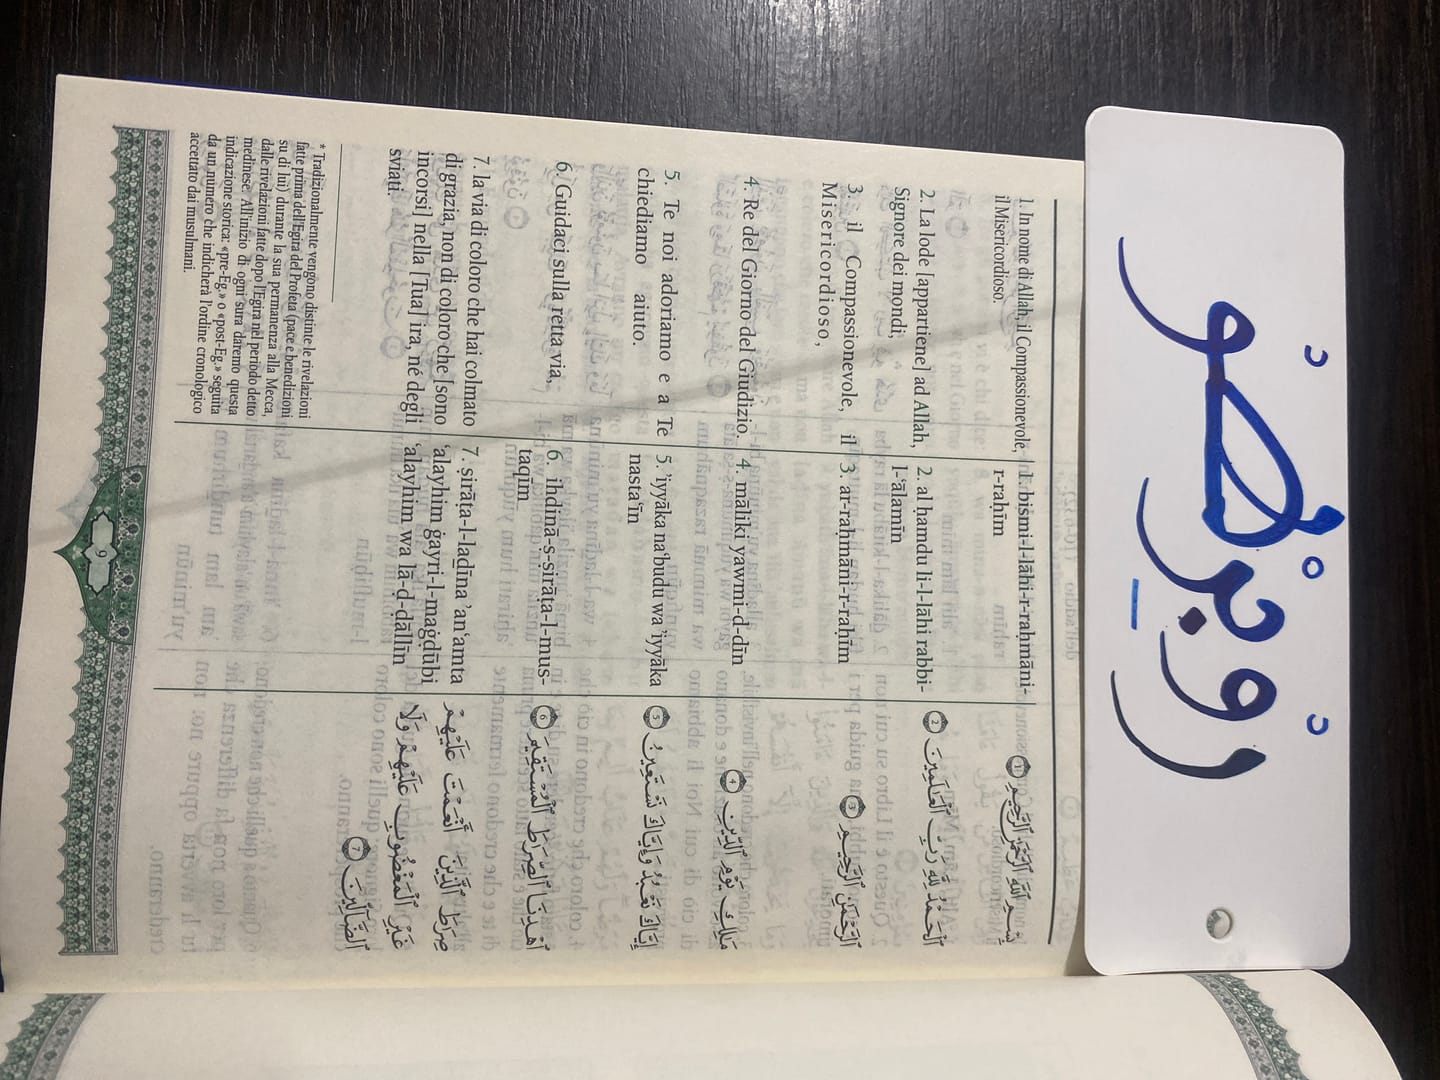 رُوبِرْطُو
1. In nome di Allah, il Compassionevole,
il Misericordioso.
2. La lode [appartiene] ad Allah,
Signore dei mondi,
3. il Compassionevole, il
Misericordioso,
4. Re del Giorno del Giudizio.
5. Te noi adoriamo e a Te
chiediamo aiuto.
6. Guidaci sulla retta via,
7. la via di coloro che hai colmato
di grazia, non di coloro che [sono
incorsi] nella [Tua] ira, né degli
sviati.
1. bismi-l-lāhi-r-raḥmāni-
r-raḥīm
2. al ḥamdu li-l-lāhi rabbi-
l-ʿālamīn
3. ar-raḥmāni-r-raḥīm
4. māliki yawmi-d-dīn
5. ʾiyyāka naʿbudu wa ʾiyyāka
nastaʿīn
6. ihdinā-ṣ-ṣirāṭa-l-mus-
taqīm
7. ṣirāṭa-l-laḏīna ʾanʿamta
ʿalayhim ġayri-l-maġḍūbi
ʿalayhim wa lā-ḍ-ḍāllīn
بِسْمِ ٱللَّهِ ٱلرَّحْمَٰنِ ٱلرَّحِيمِ ١
ٱلْحَمْدُ لِلَّهِ رَبِّ ٱلْعَٰلَمِينَ ٢
ٱلرَّحْمَٰنِ ٱلرَّحِيمِ ٣
مَٰلِكِ يَوْمِ ٱلدِّينِ ٤
إِيَّاكَ نَعْبُدُ وَإِيَّاكَ نَسْتَعِينُ ٥
ٱهْدِنَا ٱلصِّرَٰطَ ٱلْمُسْتَقِيمَ ٦
صِرَٰطَ ٱلَّذِينَ أَنْعَمْتَ عَلَيْهِمْ
غَيْرِ ٱلْمَغْضُوبِ عَلَيْهِمْ وَلَا
ٱلضَّآلِّينَ ٧
* Tradizionalmente vengono distinte le rivelazioni
fatte prima dell'Egira del Profeta (pace e benedizioni
su di lui) durante la sua permanenza alla Mecca,
dalle rivelazioni fatte dopo l'Egira nel periodo detto
medinese. All'inizio di ogni sura daremo questa
indicazione storica: «pre-Eg.» o «post-Eg.» seguita
da un numero che indicherà l'ordine cronologico
accettato dai musulmani.
9